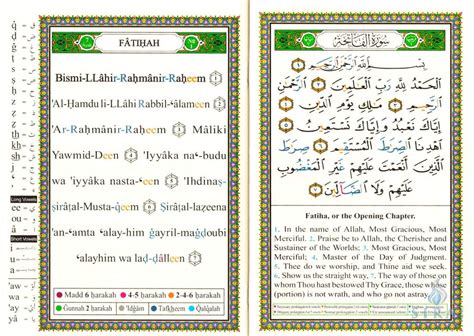 FÂTIḤAH
Bismi-LLâhir-Raḥmânir-Raḥeem ①
'Al-Ḥamdu li-LLâhi Rabbil-ʿâlameen ②
'Ar-Raḥmânir-Raḥeem ③ Mâliki
Yawmid-Deen ④ 'Iyyâka naʿ-budu
wa 'iyyâka nasta-ʿeen ⑤ 'Ihdinaṣ-
ṣirâṭal-Mustaq-ḡeem ⑥ Ṣirâṭal-lazeena
'an-ʿamta ʿalay-him ġayril-maġdoubi
ʿalayhim wa laḍ-dâlleen ⑦
Long Vowels
Short Vowels
Madd 6 ḥarakah
4-5 ḥarakah
2-4-6 ḥarakah
Gunnah 2 ḥarakah
'Idġâm
Tafḵeem
Qalqalah
سورة الفاتحة
بِسْمِ اللَّهِ الرَّحْمَٰنِ الرَّحِيمِ ١
الْحَمْدُ لِلَّهِ رَبِّ الْعَالَمِينَ ٢ الرَّحْمَٰنِ
الرَّحِيمِ ٣ مَالِكِ يَوْمِ الدِّينِ ٤
إِيَّاكَ نَعْبُدُ وَإِيَّاكَ نَسْتَعِينُ ٥
اهْدِنَا الصِّرَاطَ الْمُسْتَقِيمَ ٦ صِرَاطَ
الَّذِينَ أَنْعَمْتَ عَلَيْهِمْ غَيْرِ الْمَغْضُوبِ
عَلَيْهِمْ وَلَا الضَّالِّينَ ٧
Fatiha, or the Opening Chapter.
1. In the name of Allah, Most Gracious, Most
Merciful. 2. Praise be to Allah, the Cherisher and
Sustainer of the Worlds; 3. Most Gracious, Most
Merciful; 4. Master of the Day of Judgment.
5. Thee do we worship, and Thine aid we seek.
6. Show us the straight way, 7. The way of those on
whom Thou hast bestowed Thy Grace, those whose
(portion) is not wrath, and who go not astray.